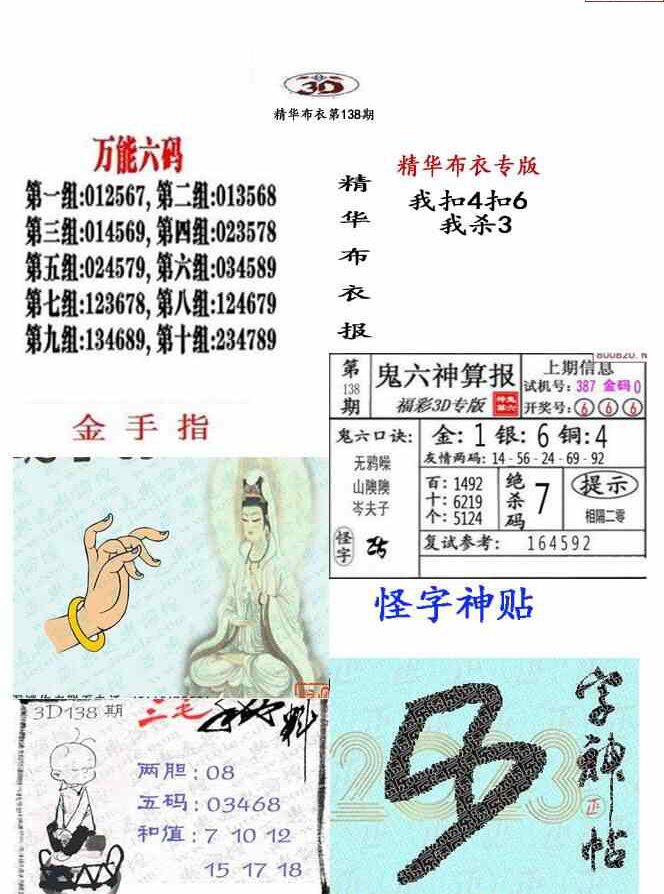 3D
精华布衣第138期
万能六码
第一组:012567,第二组:013568
第三组:014569,第四组:023578
第五组:024579,第六组:034589
第七组:123678,第八组:124679
第九组:134689,第十组:234789
精华布衣报
精华布衣专版
我扣4扣6
我杀3
金手指
第138期
鬼六神算报
福彩3D专版
上期信息
试机号:387 金码0
开奖号:⑥⑥⑥
鬼六口诀:
无鸦噪
山隩隩
岑夫子
怪字
金:1银:6铜:4
友情两码:14-56-24-69-92
百:1492
十:6219
个:5124
绝杀码
7
提示
相隔二零
复试参考: 164592
怪字神贴
3D138期
三毛
两胆:08
五码:03468
和值:7 10 12
15 17 18
2023
字神帖
正